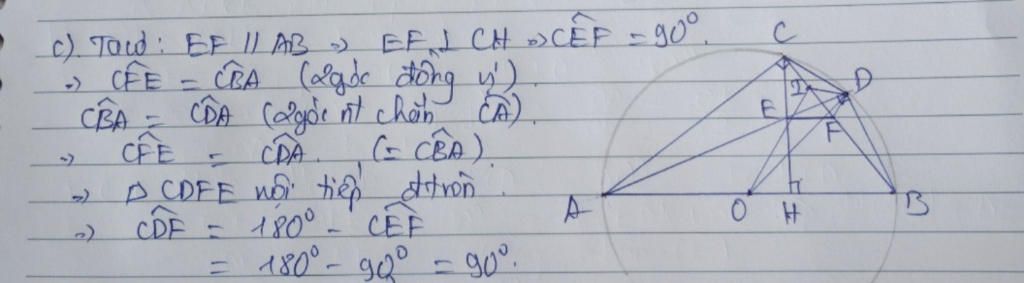 c) Ta có: EF // AB => EF ⊥ CH => CÊF = 90°.
=> CF̂E = CB̂A (2 góc đồng vị).
CB̂A = CD̂A (2 góc nt chắn CA).
=> CF̂E = CD̂A. (= CB̂A).
=> CDFE nội tiếp đtròn.
=> CD̂F = 180° - CÊF
= 180° - 90° = 90°.
C
I
D
E
F
A
O
H
B